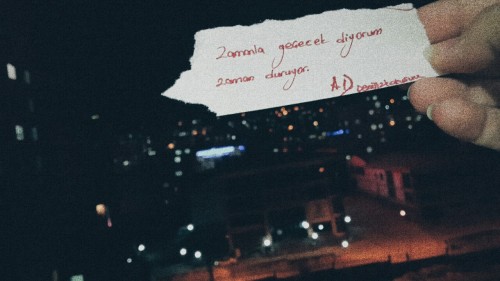 Zamanla geçecek diyorum
zaman duruyor.
A.D